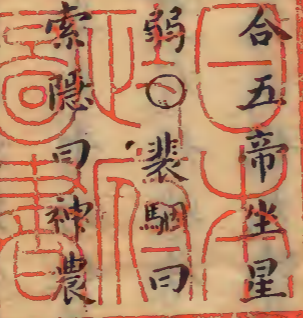 合五帝坐星
弱〇裴駰曰
索隱曰神農